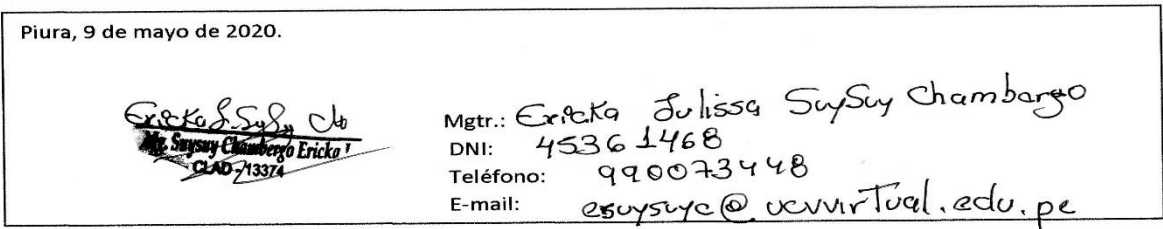 Piura, 9 de mayo de 2020.
Ericka J. SuySuy Ch
Mg. Suysuy Chambergo Ericka J
CLAD - 13374
Mgtr.: Ericka Julissa SuySuy Chambergo
DNI: 45361468
Teléfono: 990073448
E-mail: esuysuyc@ucvvirtual.edu.pe